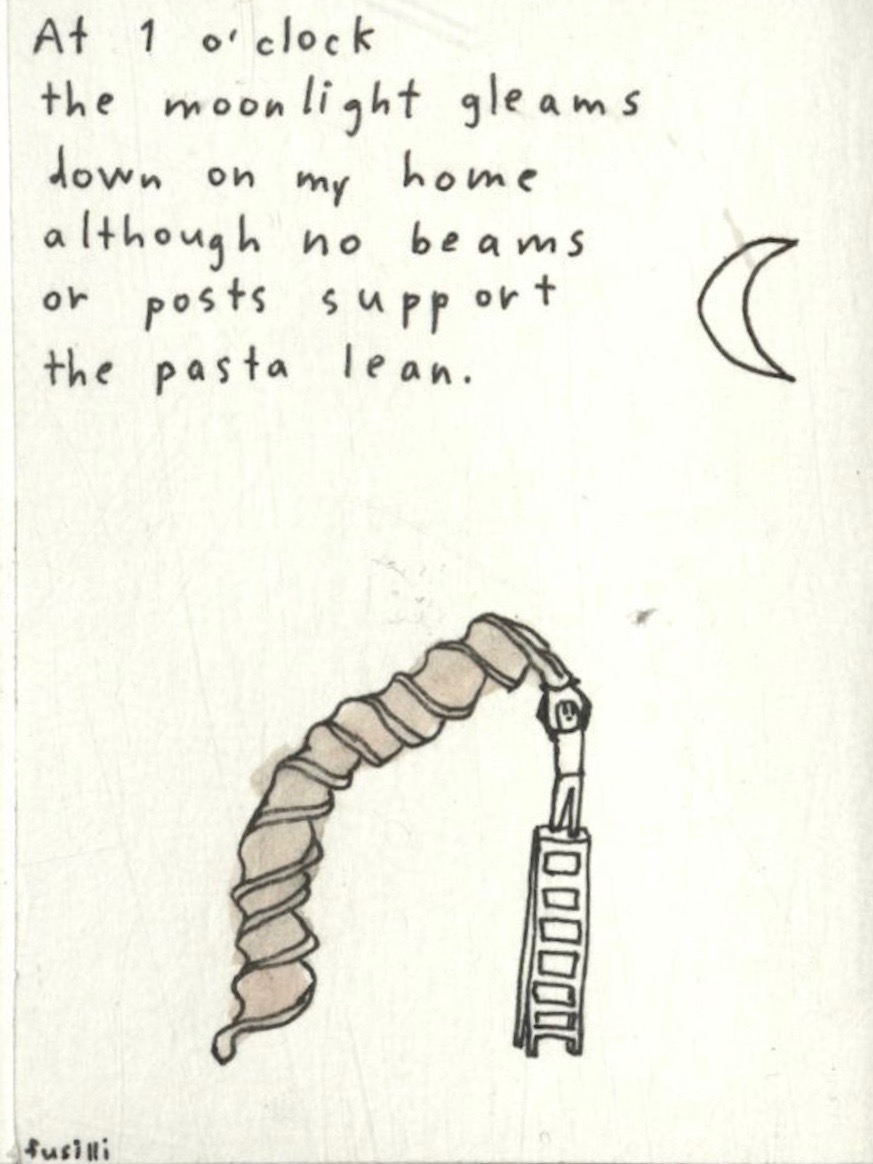 At 1 o'clock
the moonlight gleams
down on my home
although no beams
or posts support
the pasta lean.
fusilli